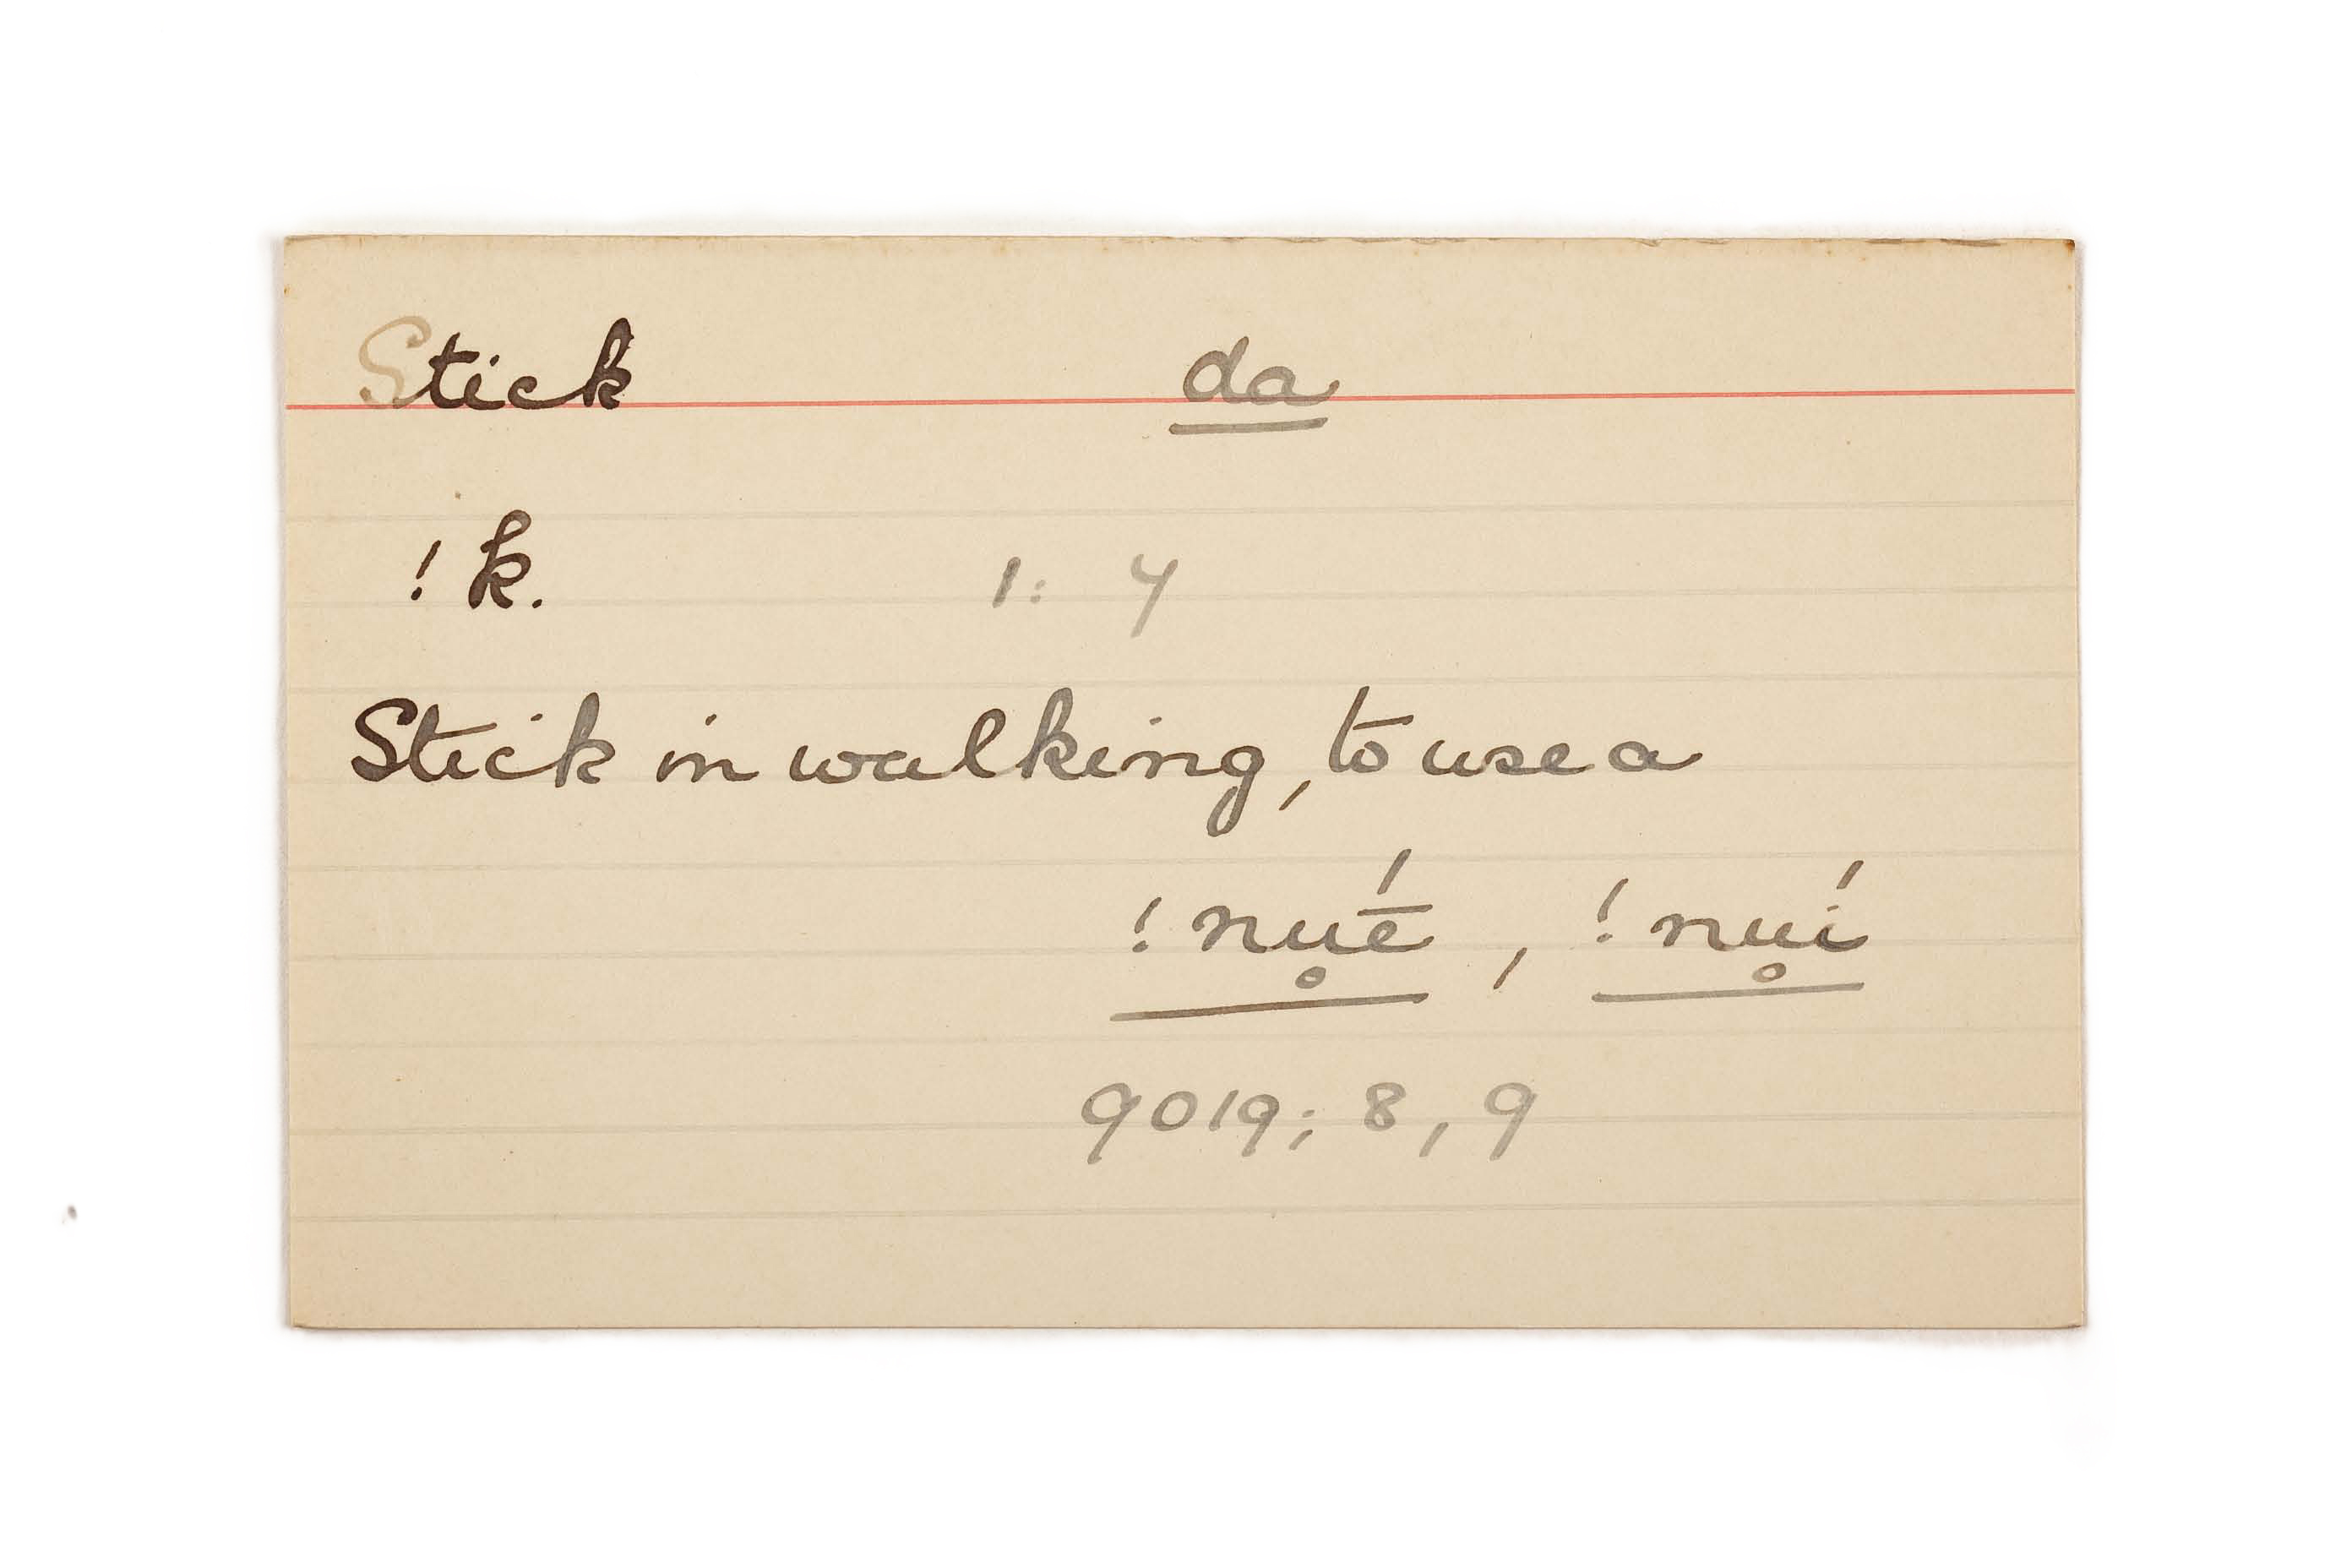 Stick da
!k. 1: 4
Stick in walking, to use a
!nu̥ḗ, !nu̥í
9019; 8, 9